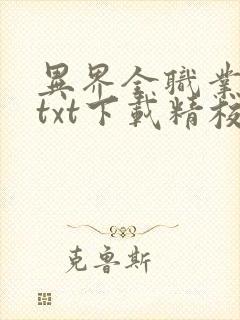 異界全職業
txt下載精校
克魯斯